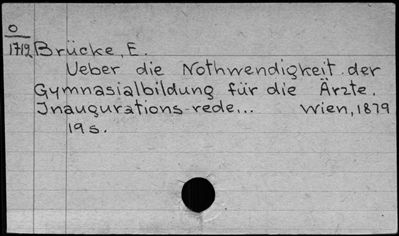 O
1712 Brücke, E.
Ueber die Nothwendigkeit der
Gymnasialbildung für die Ärzte.
Inaugurations-rede... Wien, 1879
19 s.